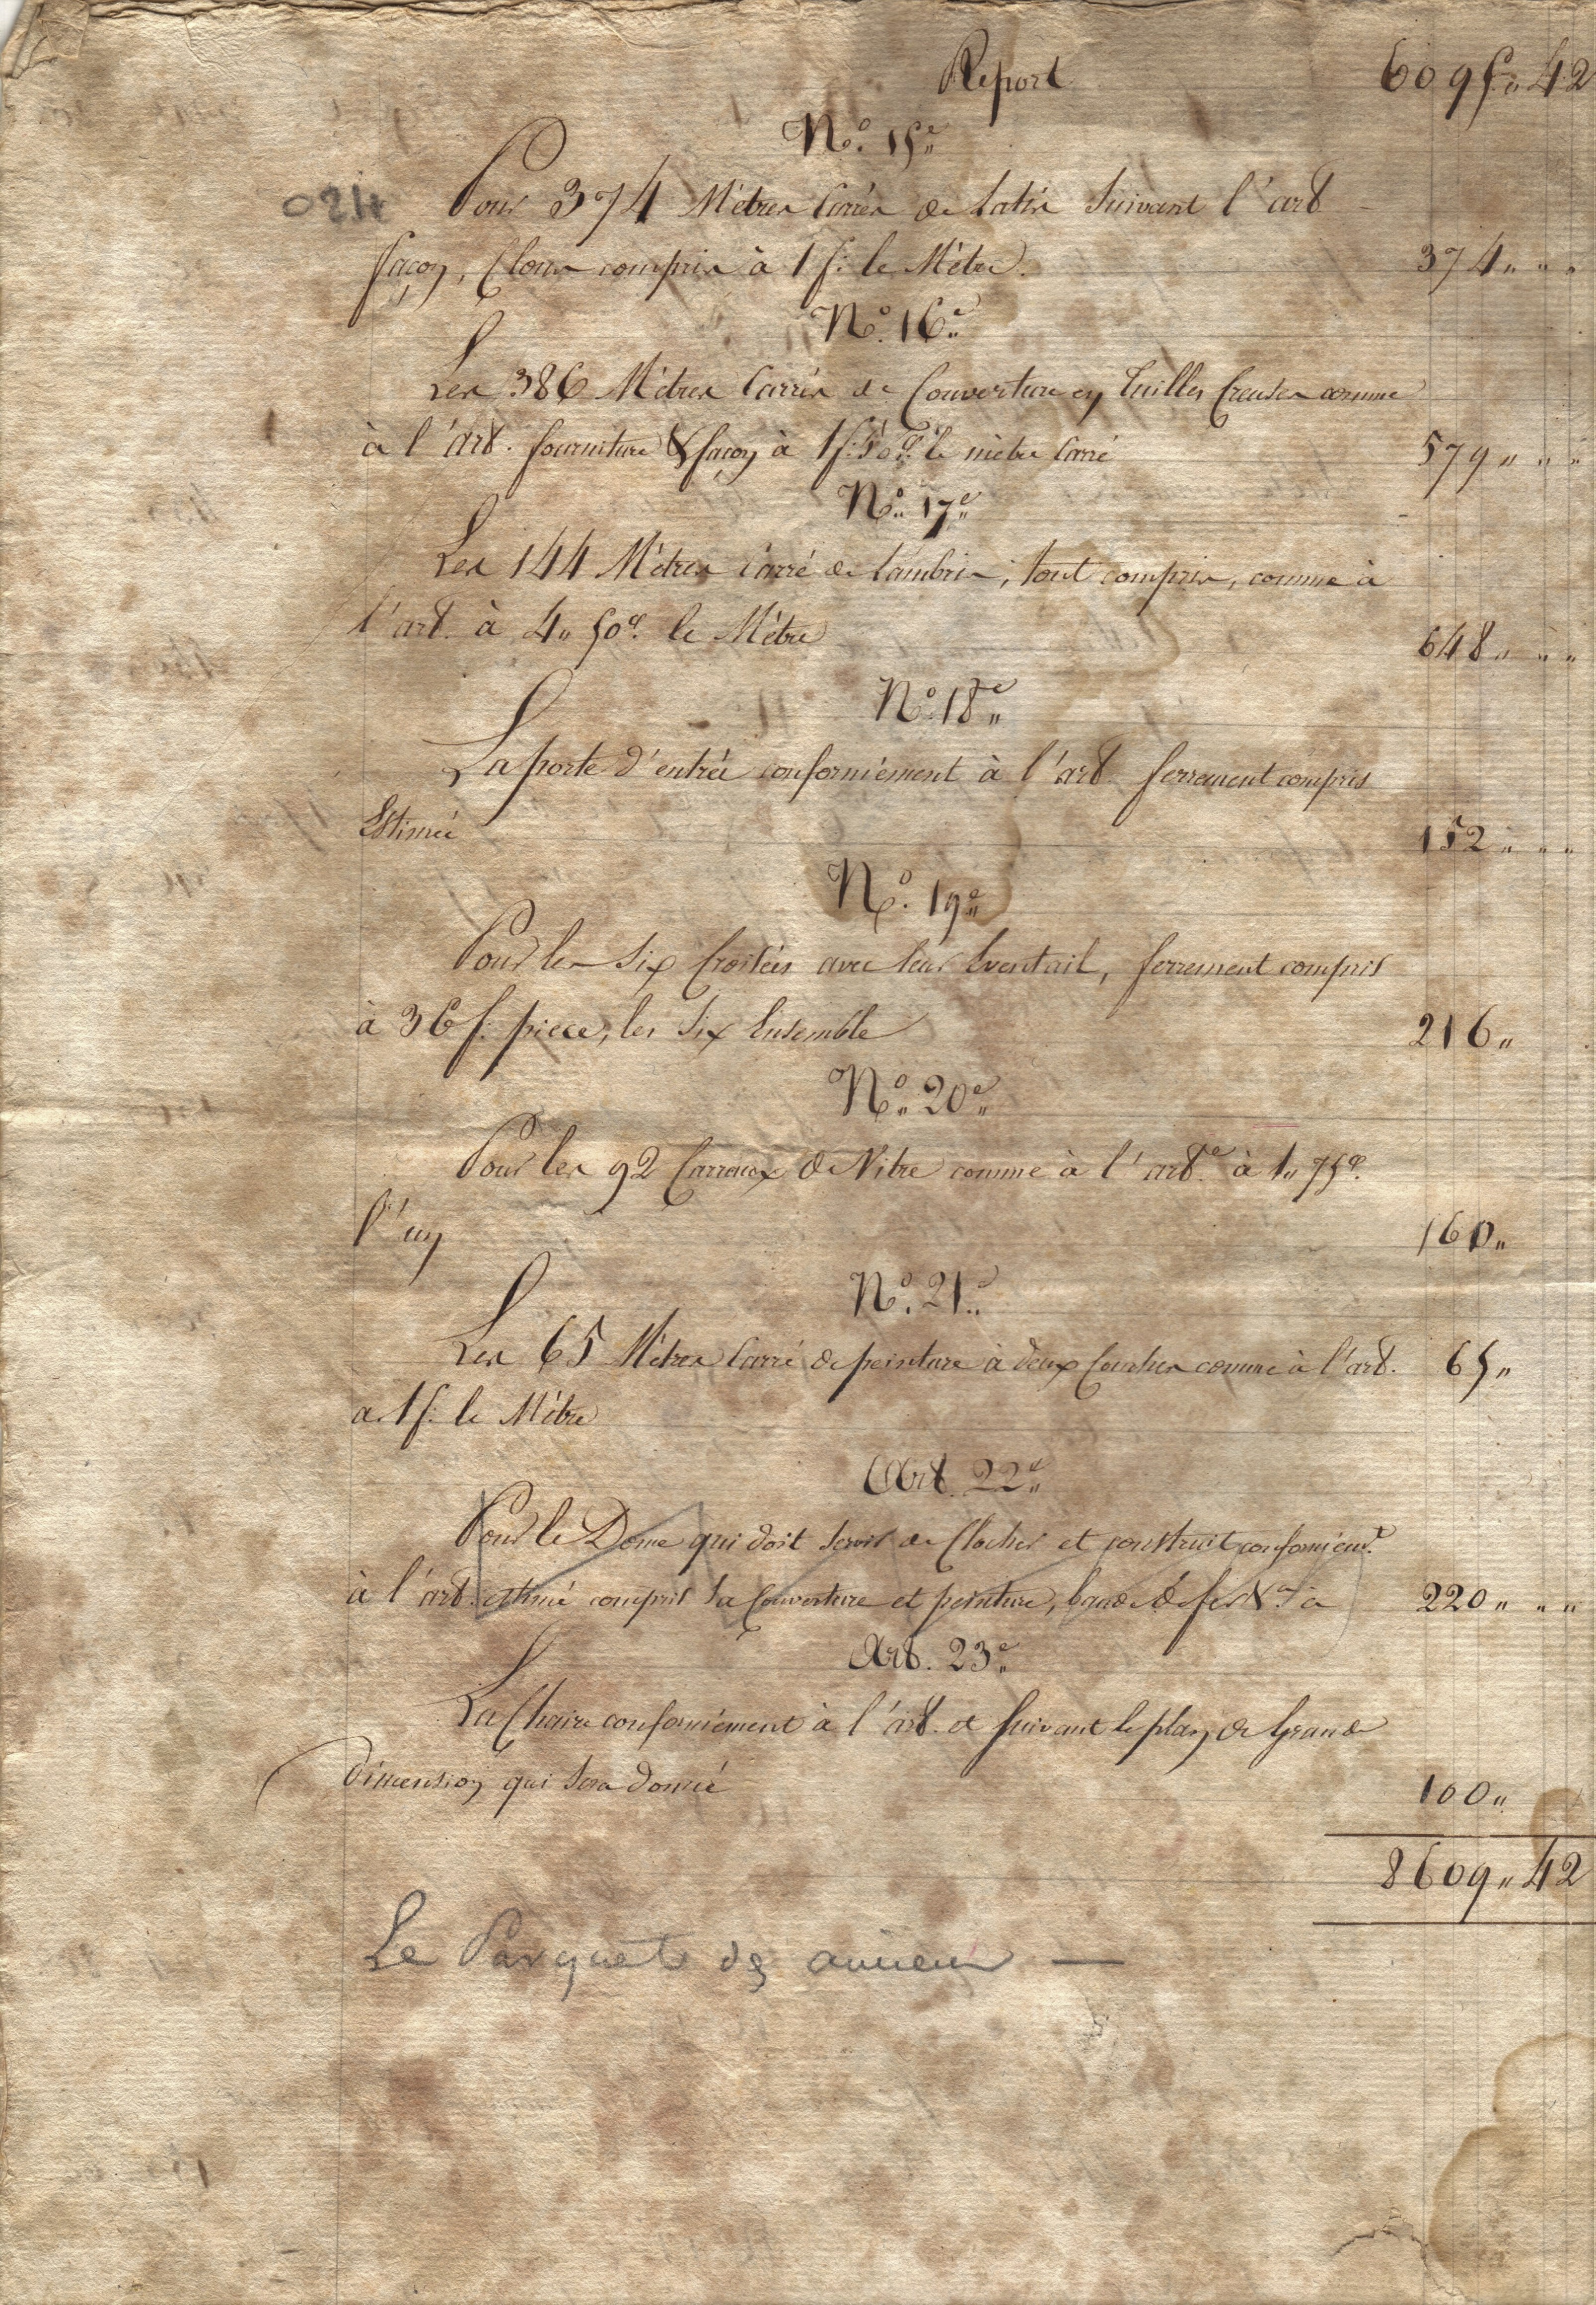 Report 6095,, 42
N.º 15.e
Pour 374 Mètres Carrés de Latis Suivant l'art
façon, Cloux compris à 1 f. le Mètre. 374,, ,, ,,
N.º 16.e
Les 386 Mètres Carrés de Couverture en Tuilles Creuses comme
à l'art. fourniture & façon à 1 f. 50 c. le mètre Carré 579,, ,, ,,
N.º 17.e
Les 144 Mètres Carré de Lambris, tout compris, comme à
l'art. à 4,, 50 c. le Mètre 648,, ,, ,,
N.º 18.e
La porte d'entrée conformément à l'art. ferrement compris
Estimée 152,, ,, ,,
N.º 19.e
Pour les Six Croisées avec leur Eventail, ferrement compris
à 36 f. piece, les Six Ensemble 216,,
N.º 20.e
Pour les 92 Carreaux de Vitre comme à l'art.e à 1,, 75 c.
l'un 160,,
N.º 21.e
Les 65 Mètres Carré de peinture à deux Couches comme à l'art. 65,,
a 1 f. le Mètre
Art. 22.e
Pour le Dome qui doit Servir de Clocher et construit conformém.t
à l'art. estimé compris Sa Couverture et peinture, bande de fer &.a à 220,, ,, ,,
Art. 23.e
La Chaire conformément à l'art. et Suivant le plan de Grande
Dimension qui Sera Donné 100,,
8609,, 42
Le Parquet
024